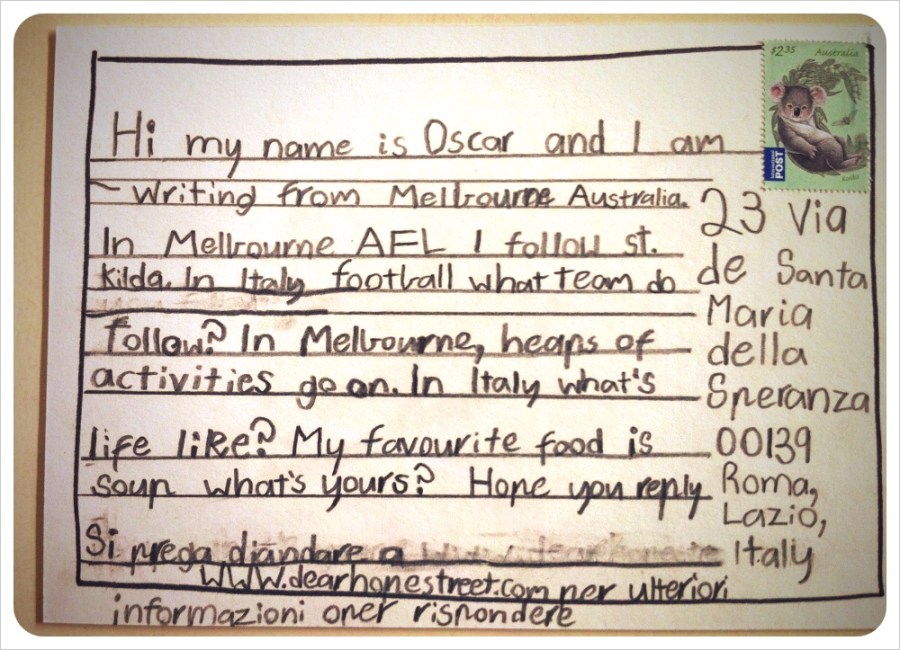 Hi my name is Oscar and I am
writing from Melbourne Australia.
In Melbourne AFL I follow st.
Kilda. In Italy football what team do
follow? In Melbourne, heaps of
activities go on. In Italy what's
life like? My favourite food is
soup what's yours? Hope you reply
Si prega diandare a
www.dearhonestreet.com per ulteriori
informazioni oper rispondere
$2.35 Australia
International
POST
Koala
23 Via
de Santa
Maria
della
Speranza
00139
Roma,
Lazio,
Italy